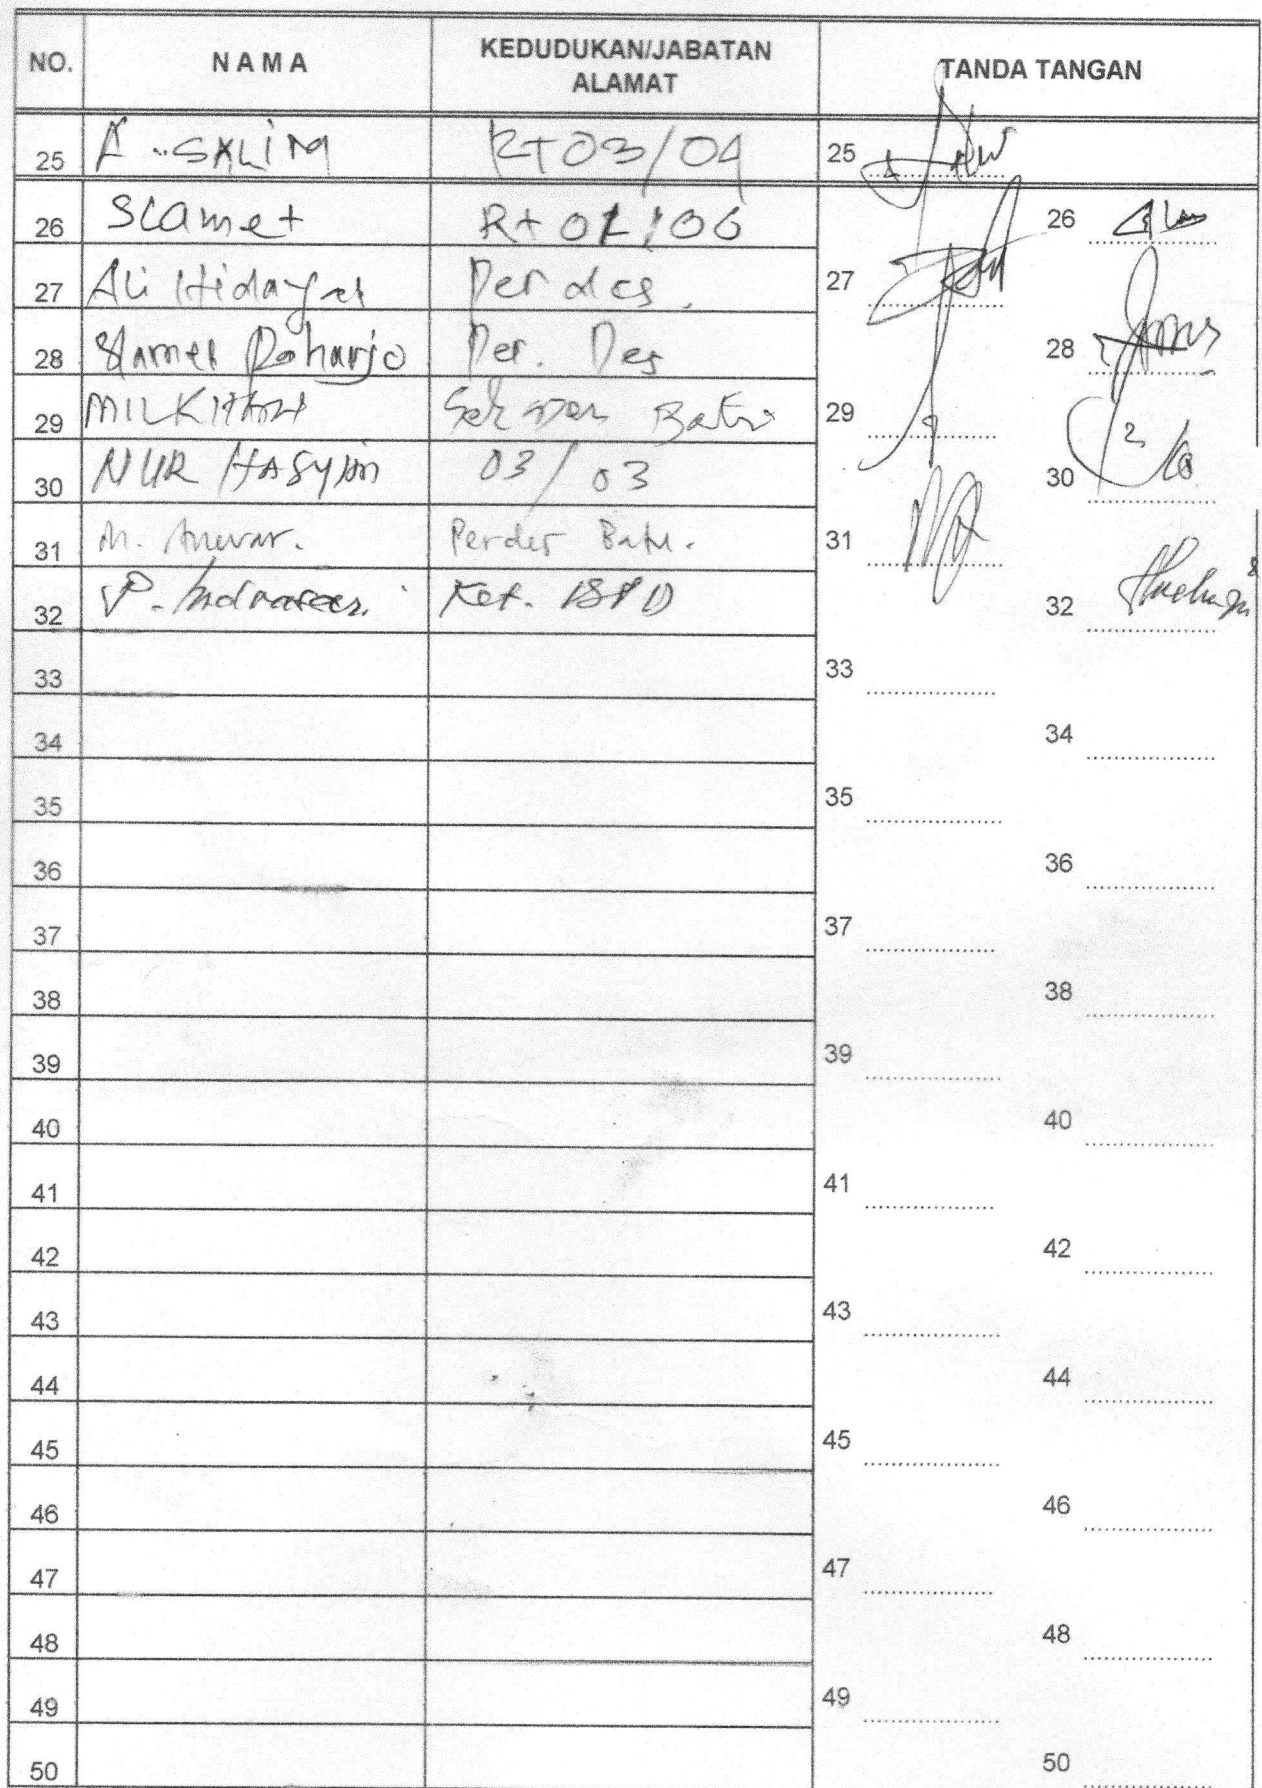 NO. NAMA KEDUDUKAN/JABATAN ALAMAT TANDA TANGAN
25 A. SALIM RT 03/04 25
26 Slamet Rt 01/06 26
27 Ali Hidayat Perdes. 27
28 Slamet Raharjo Per. Des 28
29 Batur 29
30 NUR HASYIM 03/03 30
31 M. Anwar. Perdes Batur. 31
32 P. Ket. BPD 32
33 33
34 34
35 35
36 36
37 37
38 38
39 39
40 40
41 41
42 42
43 43
44 44
45 45
46 46
47 47
48 48
49 49
50 50